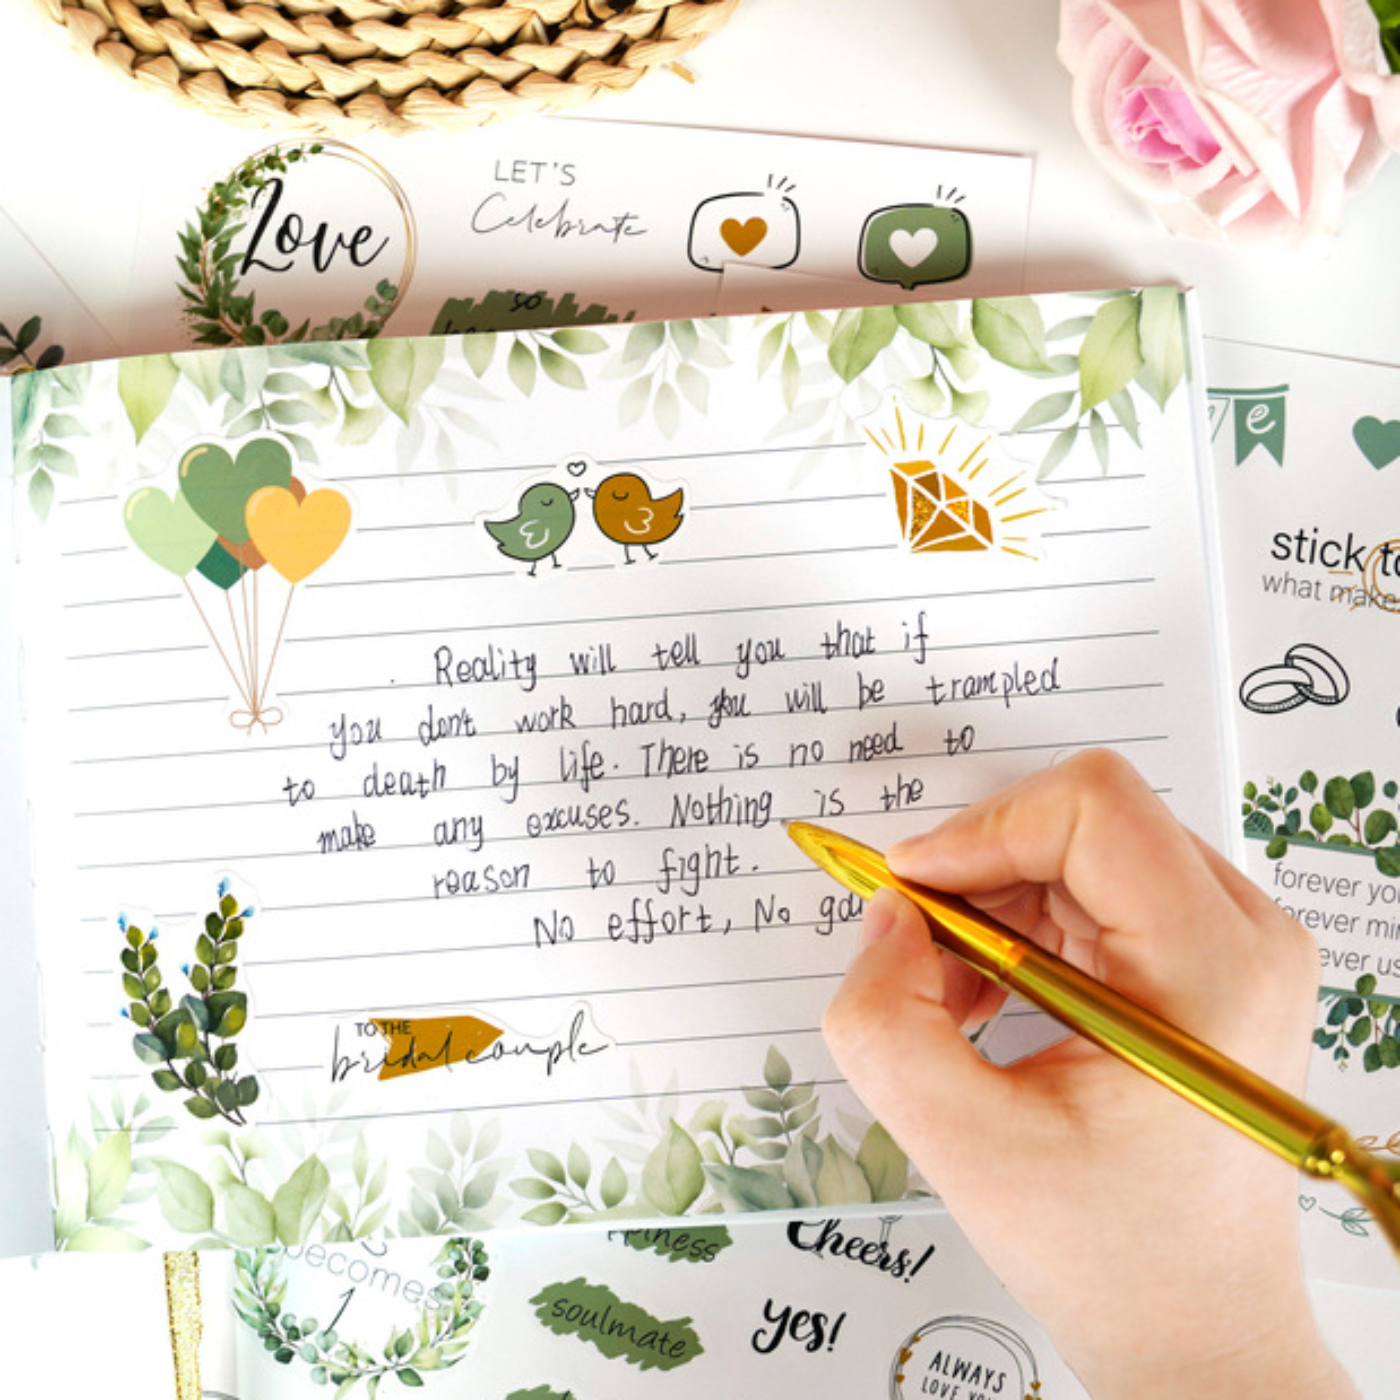 Love
LET'S
Celebrate
so
e
stick to
what make
Reality will tell you that if
you don't work hard, you will be trampled
to death by life. There is no need to
make any excuses. Nothing is the
reason to fight.
No effort, No
TO THE
bridal couple
forever you
forever
ever us
becomes
1
Cheers!
soulmate
yes!
ALWAYS
LOVE